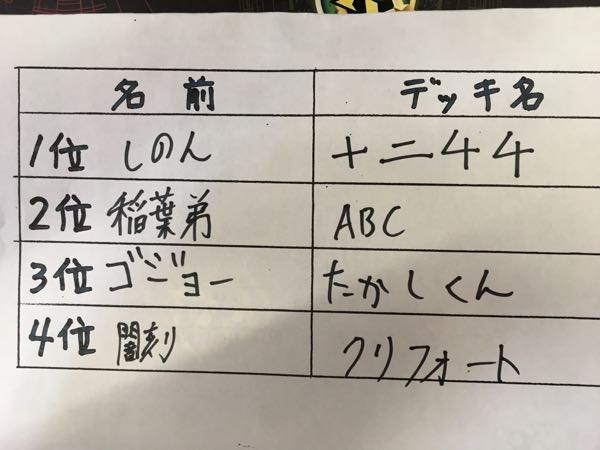 名前 デッキ名
1位 しのん 十二44
2位 稲葉弟 ABC
3位 ゴジョー たかしくん
4位 闇刻 クリフォート